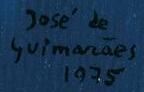 José de
Guimarães
1975